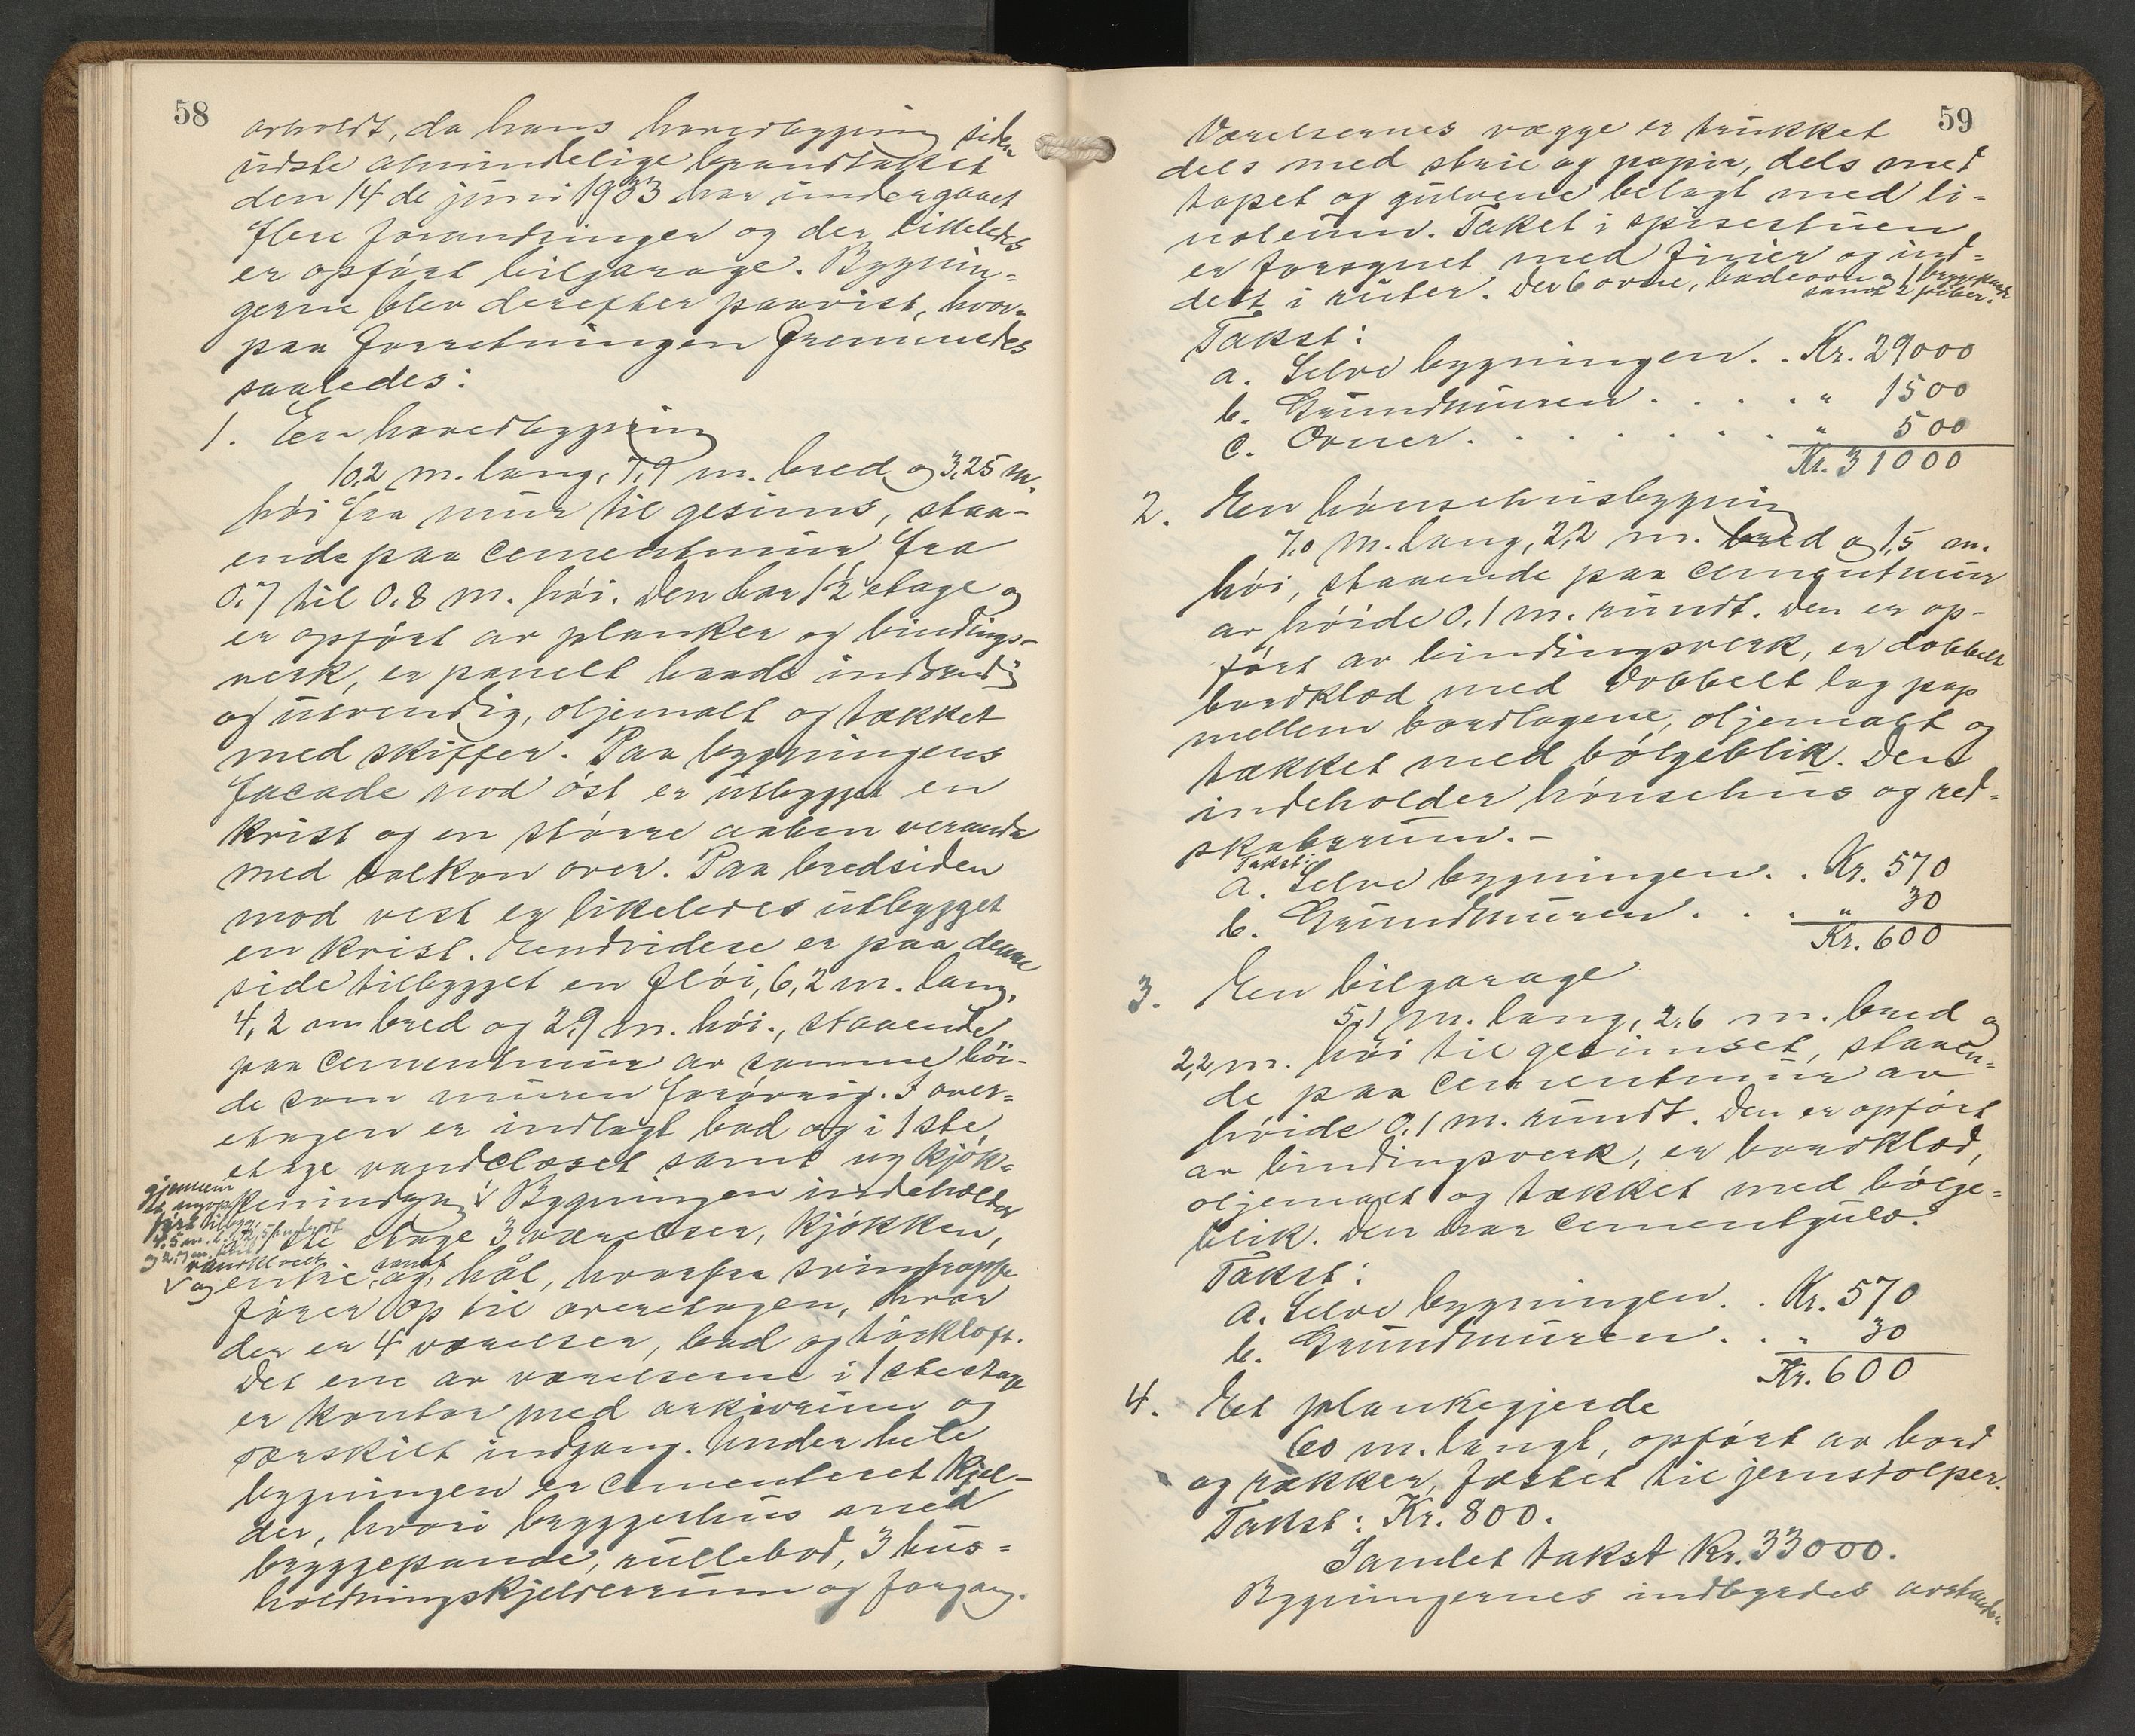 58
avholdt, da hans hovedbygning siden
sidste almindelige brandtakst
den 14de juni 1933 har undergaaet
flere forandringer og der likeledes
er opført bilgarage. Bygnin-
gerne blev derefter paavist, hvor-
paa forretningen fremmedes
saaledes:
1. En hovedbygning
10,2 m. lang, 7,9 m. bred og 3,25 m.
høi fra mur til gesims, staa-
ende paa cementmur fra
0.7 til 0.8 m. høi. Den har 1½ etage og
er opført av planker og bindings-
verk, er panelt baade indvendig
og utvendig, oljemalt og tækket
med skiffer. Paa bygningens
facade mod øst er utbygget en
krist og en større aaben veranda
med balkon over. Paa bredsiden
mod vest er likeledes utbygget
en krist. Endvidere er paa denne
side tilbygget en fløi, 6,2 m. lang,
4,2 m bred og 2,9 m. høi., staaende
paa cementmur av samme høi-
de som muren forøvrig. I over-
etagen er indlagt bad og i 1ste
etage vandcloset samt ny kjøk-
gjennem
et nyop-
ført tilbyg,
keninngang √ Bygningen indeholder
4.5 m. l.
og 2,7 m.
1ste etage 3 værelser, kjøkken,
√ og vandklosett
entre, og samt hål, hvorfra svingtrappe
fører op til overetagen, hvor
der er 4 værelser, bad og tørkloft.
Det ene av værelserne i 1ste etage
er kontor med arkivrum og
særskilt indgang. Under hele
bygningen er cementeret kjel-
der, hvori bryggerhus med
bryggepande, rullebod, 3 hus-
holdningskjelderrum og forgang.
59
Værelsernes vægge er trukket
dels med strie og papir, dels med
tapet og gulvene belagt med li-
noleum. Taket i spisestuen
er forsynet med finér og ind-
delt i ruter. Der 6 ovne, badeovn og 1 bryggepande
samt 2 piber.
Takst:
a. Selve bygningen. . Kr. 29000
b. Grundmuren . . . . . " 1500
c. Ovner. . . . . . . . " 500
Kr. 31000
2. En hønsehusbygning
7,0 m. lang, 2,2 m. bred og 1,5 m.
høi, staaende paa cementmur
av høide 0.1 m. rundt. Den er op-
ført av bindingsverk, er dobbelt
bordklæd med dobbelt lag pap
mellem bordlagene, oljemalt og
tækket med bølgeblik. Den
indeholder hønsehus og red-
skabsrum. -
Takst:
a. Selve bygningen. . Kr. 570
b. Grundmuren . . . " 30
Kr. 600
3. En bilgarage
5,1 m. lang, 2,6 m. bred og
2,2 m. høi til gesimset, staaen-
de paa cementmur av
høide 0,1 m. rundt. Den er opført
av bindingsverk, er bordklæd,
oljemalt og tækket med bølge-
blik. Den har cementgulv.
Takst:
a. Selve bygningen. . Kr. 570
b. Grundmuren . . " 30
Kr. 600
4. Et plankegjerde
60 m. langt, opført av bord
og rækker, fæstet til jernstolper.
Takst: Kr. 800.
Samlet takst Kr. 33000.
Bygningernes indbyrdes avstande